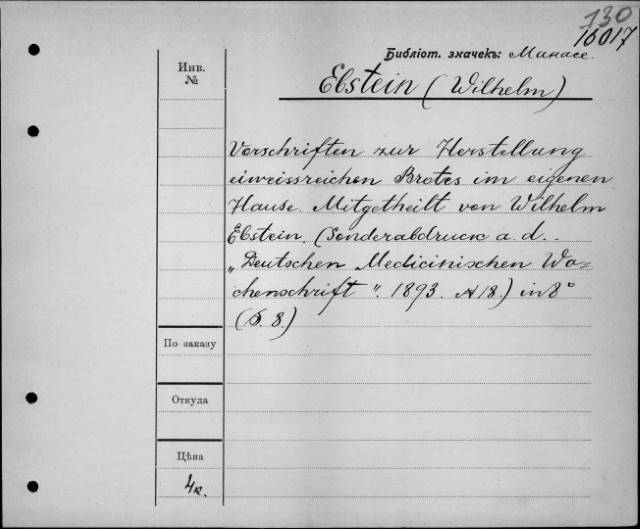 130
16017
Библіот. значекъ: Минасе.
Инв.
№
Ebstein (Wilhelm)
Vorschriften zur Herstellung
eiweissreichen Brotes im eigenen
Hause. Mitgetheilt von Wilhelm
Ebstein. (Sonderabdruck a. d.
„Deutschen Medicinischen Wo-
chenschrift". 1893. № 18.) in 8°
(S. 8.)
По заказу
Откуда
Цѣна
4к.